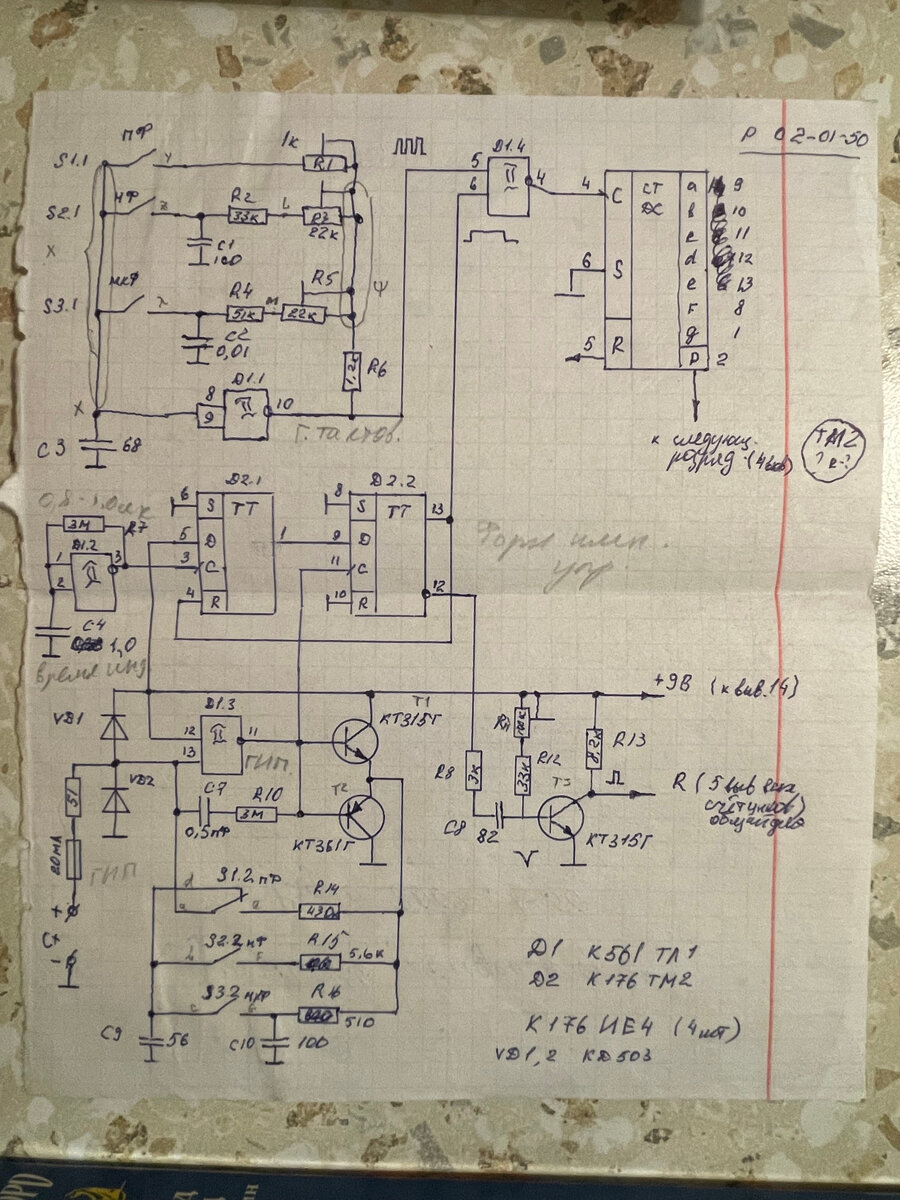 Р 02-01-50
S1.1 ПФ y 1к R1
S2.1 НФ z R2 33к L R3 22к
C1 100
X
S3.1 МКФ λ R4 51к м R5 22к ψ
C2 0,01
R6 1,2к
X 8 9 D1.1 10
C3 68
Г. тактов.
5 6 D1.4 4
4 C СТ DC a 9
b 10
c 11
6 S d 12
e 13
F 8
5 R g 1
P 2
к следующ.
разряд. (4 выв)
ТМ2
0,8-1,0мк
3М R7
1 2 D1.2 3
C4 1,0
время инд
D2.1 TT
6 S
5 D 1
3 C
4 R
D2.2 TT
8 S 13
9 D
11 C
10 R 12
Форм имп.
упр.
+9В (к выв.14)
VD1
VD2
12 13 D1.3 11
ГИП.
T1 КТ315Г
T2 КТ361Г
C7 0,5пФ R10 3М
51
20мА
ГИП
+
Cx
-
R8 3к
C8 82
R12 33к
T3 КТ315Г
R13 8,2к
R (5 выв всех
счётчиков)
d S1.2 ПФ R14 430к
a a
S2.2 НФ R15 5,6к
b
S3.2 МКФ R16 510
c
C9 56 C10 100
D1 К561 ТЛ1
D2 К176 ТМ2
К176 ИЕ4 (4шт)
VD1,2 КД503